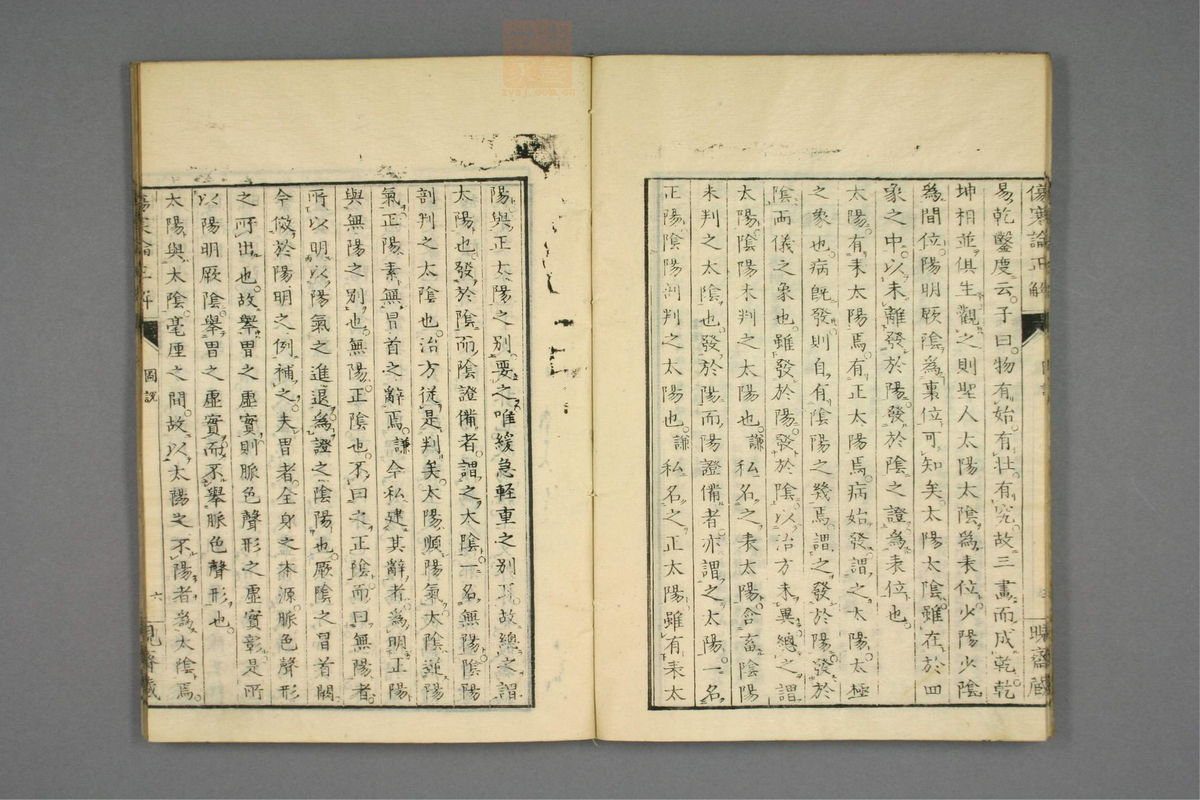 傷寒論正解
易乾鑿度云子曰物有始有壯有究故三畫而成乾乾
坤相並俱生觀之則聖人太陽太陰爲表位少陽少陰
爲間位陽明厥陰爲裏位可知矣太陽太陰雖在於四
象之中以未離發於陽發於陰之證爲表位也
太陽有未太陽焉有正太陽焉病始發謂之太陽太極
之象也病既發則自有陰陽之幾焉謂之發於陽發於
陰兩儀之象也雖發於陽發於陰以治方未異總之謂
太陽陰陽未判之太陽也謙私名之表太陽含畜陰陽
未判之太陰也發於陽而陽證備者亦謂之太陽一名
正陽陰陽剖判之太陽也謙私名之正太陽雖有表太
陽與正太陽之別要之唯緩急輕重之別耳故總之謂
太陽也發於陰而陰證備者謂之太陰一名無陽陰陽
剖判之太陰也治方從是判矣太陽順陽氣太陰逆陽
氣正陽素無冒首之辭焉謙今私建其辭者爲明正陽
與無陽之別也無陽正陰也不曰之正陰而曰無陽者
所以明以陽氣之進退爲證之陰陽也厥陰之冒首闕
今倣於陽明之例補之夫胃者全身之本源脈色聲形
之所出也故舉胃之虛實則脈色聲形之虛實彰是所
以陽明厥陰舉胃之虛實而不舉脈色聲形也
太陽與太陰毫厘之間故以太陽之不陽者爲太陰焉
圖說
六